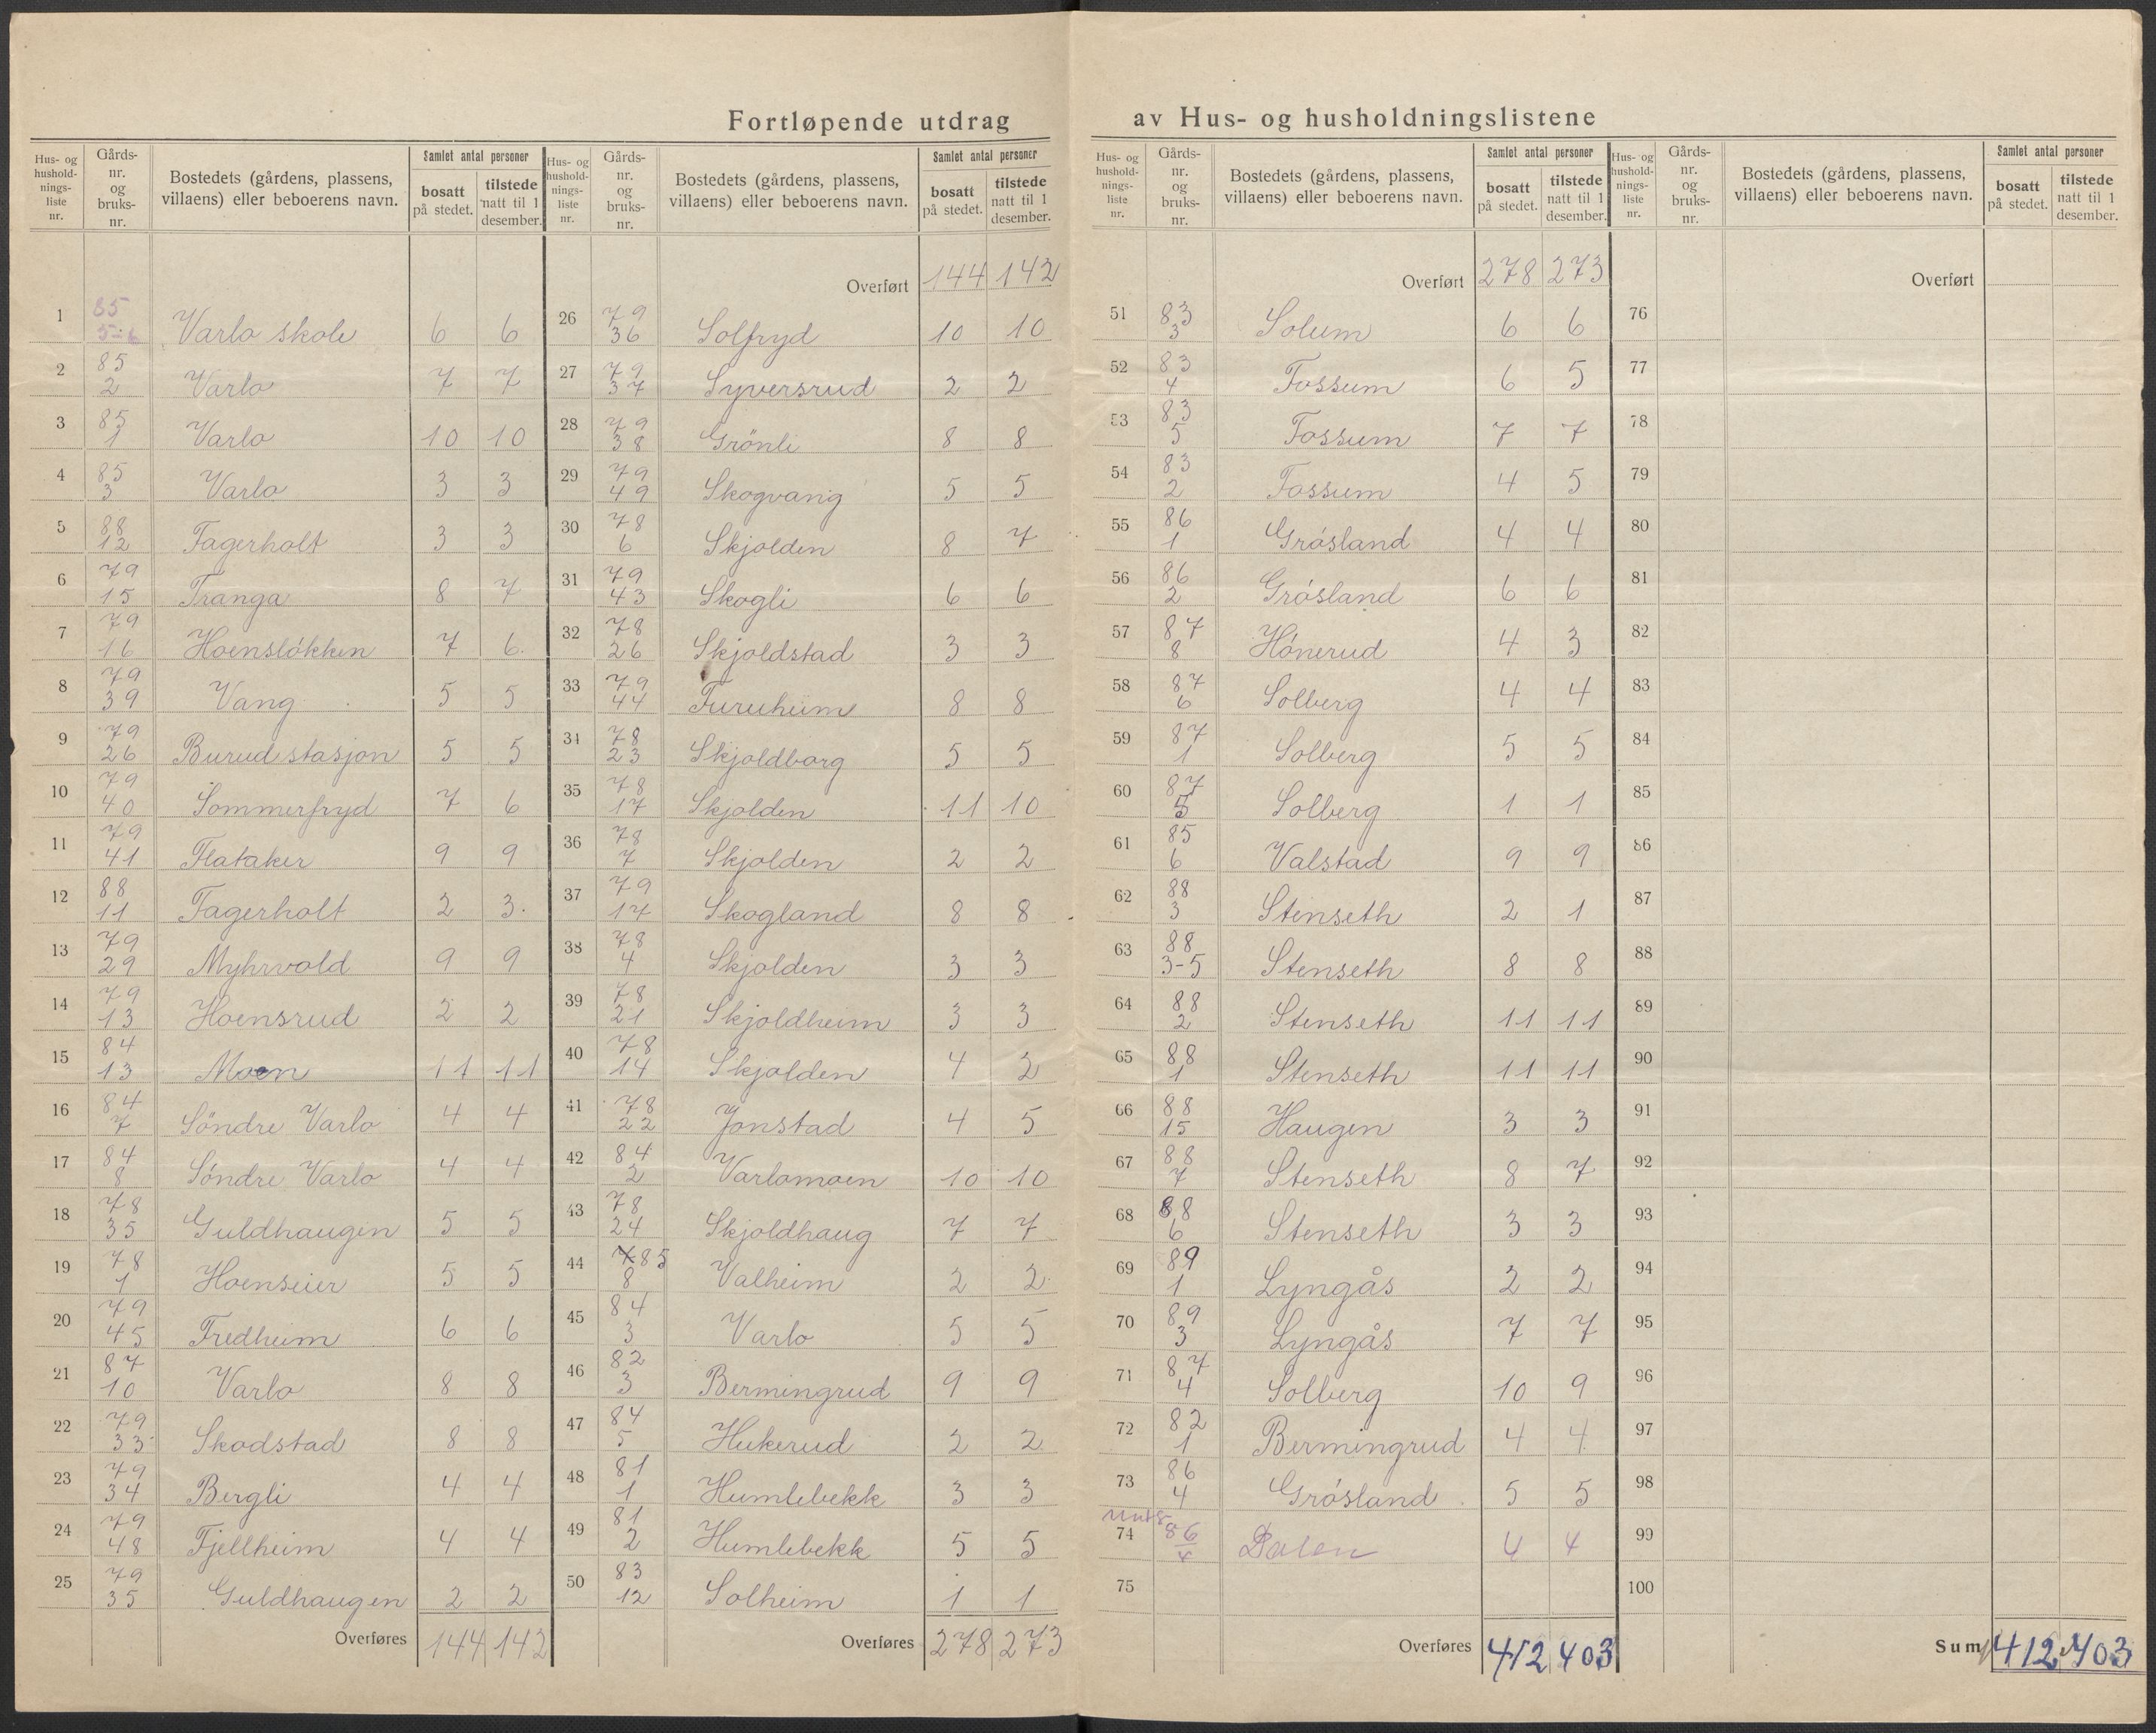 Fortløpende utdrag av Hus- og husholdningslistene
Hus- og hushold-nings-liste nr. | Gårds-nr. og bruks-nr. | Bostedets (gårdens, plassens, villaens) eller beboerens navn. | Samlet antal personer | bosatt på stedet. | tilstede natt til 1 desember.
1 | 85 5-6 | Varlo skole | 6 | 6
2 | 85 2 | Varlo | 7 | 7
3 | 85 1 | Varlo | 10 | 10
4 | 85 3 | Varlo | 3 | 3
5 | 88 12 | Fagerholt | 3 | 3
6 | 79 15 | Tranga | 8 | 7
7 | 79 16 | Hoensløkken | 7 | 6
8 | 79 39 | Vang | 5 | 5
9 | 79 26 | Burud stasjon | 5 | 5
10 | 79 40 | Sommerfryd | 7 | 6
11 | 79 41 | Flataker | 9 | 9
12 | 88 11 | Fagerholt | 2 | 3
13 | 79 29 | Myhrvold | 9 | 9
14 | 79 13 | Hoensrud | 2 | 2
15 | 84 13 | Moen | 11 | 11
16 | 84 7 | Söndre Varlo | 4 | 4
17 | 84 8 | Söndre Varlo | 4 | 4
18 | 78 35 | Guldhaugen | 5 | 5
19 | 78 1 | Hoenseier | 5 | 5
20 | 79 45 | Fredheim | 6 | 6
21 | 87 10 | Varlo | 8 | 8
22 | 79 33 | Skodstad | 8 | 8
23 | 79 34 | Bergli | 4 | 4
24 | 79 48 | Fjellheim | 4 | 4
25 | 79 35 | Guldhaugen | 2 | 2
Overføres 144 142
Hus- og hushold-nings-liste nr. | Gårds-nr. og bruks-nr. | Bostedets (gårdens, plassens, villaens) eller beboerens navn. | Samlet antal personer | bosatt på stedet. | tilstede natt til 1 desember.
Overført 144 142
26 | 79 36 | Solfryd | 10 | 10
27 | 79 37 | Syversrud | 2 | 2
28 | 79 38 | Grönli | 8 | 8
29 | 79 49 | Skogvang | 5 | 5
30 | 78 6 | Skjolden | 8 | 7
31 | 79 43 | Skogli | 6 | 6
32 | 78 26 | Skjoldstad | 3 | 3
33 | 79 44 | Furuheim | 8 | 8
34 | 78 23 | Skjoldborg | 5 | 5
35 | 78 17 | Skjolden | 11 | 10
36 | 78 7 | Skjolden | 2 | 2
37 | 79 17 | Skogland | 8 | 8
38 | 78 4 | Skjolden | 3 | 3
39 | 78 21 | Skjoldheim | 3 | 3
40 | 78 14 | Skjolden | 4 | 2
41 | 78 22 | Jonstad | 4 | 5
42 | 84 2 | Varlomoen | 10 | 10
43 | 78 24 | Skjoldhaug | 7 | 7
44 | 85 8 | Valheim | 2 | 2
45 | 84 3 | Varlo | 5 | 5
46 | 82 3 | Bermingrud | 9 | 9
47 | 84 5 | Hukerud | 2 | 2
48 | 81 1 | Humlebekk | 3 | 3
49 | 81 2 | Humlebekk | 5 | 5
50 | 83 12 | Solheim | 1 | 1
Overføres 278 273
Hus- og hushold-nings-liste nr. | Gårds-nr. og bruks-nr. | Bostedets (gårdens, plassens, villaens) eller beboerens navn. | Samlet antal personer | bosatt på stedet. | tilstede natt til 1 desember.
Overført 278 273
51 | 83 3 | Solum | 6 | 6
52 | 83 4 | Fossum | 6 | 5
53 | 83 5 | Fossum | 7 | 7
54 | 83 2 | Fossum | 4 | 5
55 | 86 1 | Grósland | 4 | 4
56 | 86 2 | Grósland | 6 | 6
57 | 87 8 | Hónerud | 4 | 3
58 | 87 6 | Solberg | 4 | 4
59 | 87 1 | Solberg | 5 | 5
60 | 87 5 | Solberg | 1 | 1
61 | 85 6 | Valstad | 9 | 9
62 | 88 3 | Stenseth | 2 | 1
63 | 88 3-5 | Stenseth | 8 | 8
64 | 88 2 | Stenseth | 11 | 11
65 | 88 1 | Stenseth | 11 | 11
66 | 88 15 | Haugen | 3 | 3
67 | 88 7 | Stenseth | 8 | 7
68 | 88 6 | Stenseth | 3 | 3
69 | 89 1 | Lyngås | 2 | 2
70 | 89 3 | Lyngås | 7 | 7
71 | 87 4 | Solberg | 10 | 9
72 | 82 1 | Bermingrud | 4 | 4
73 | 86 4 | Grósland | 5 | 5
74 | 86 4 | Dalen | 4 | 4
75
Overføres 412 403
Hus- og hushold-nings-liste nr. | Gårds-nr. og bruks-nr. | Bostedets (gårdens, plassens, villaens) eller beboerens navn. | Samlet antal personer | bosatt på stedet. | tilstede natt til 1 desember.
Overført
76
77
78
79
80
81
82
83
84
85
86
87
88
89
90
91
92
93
94
95
96
97
98
99
100
Sum 412 403